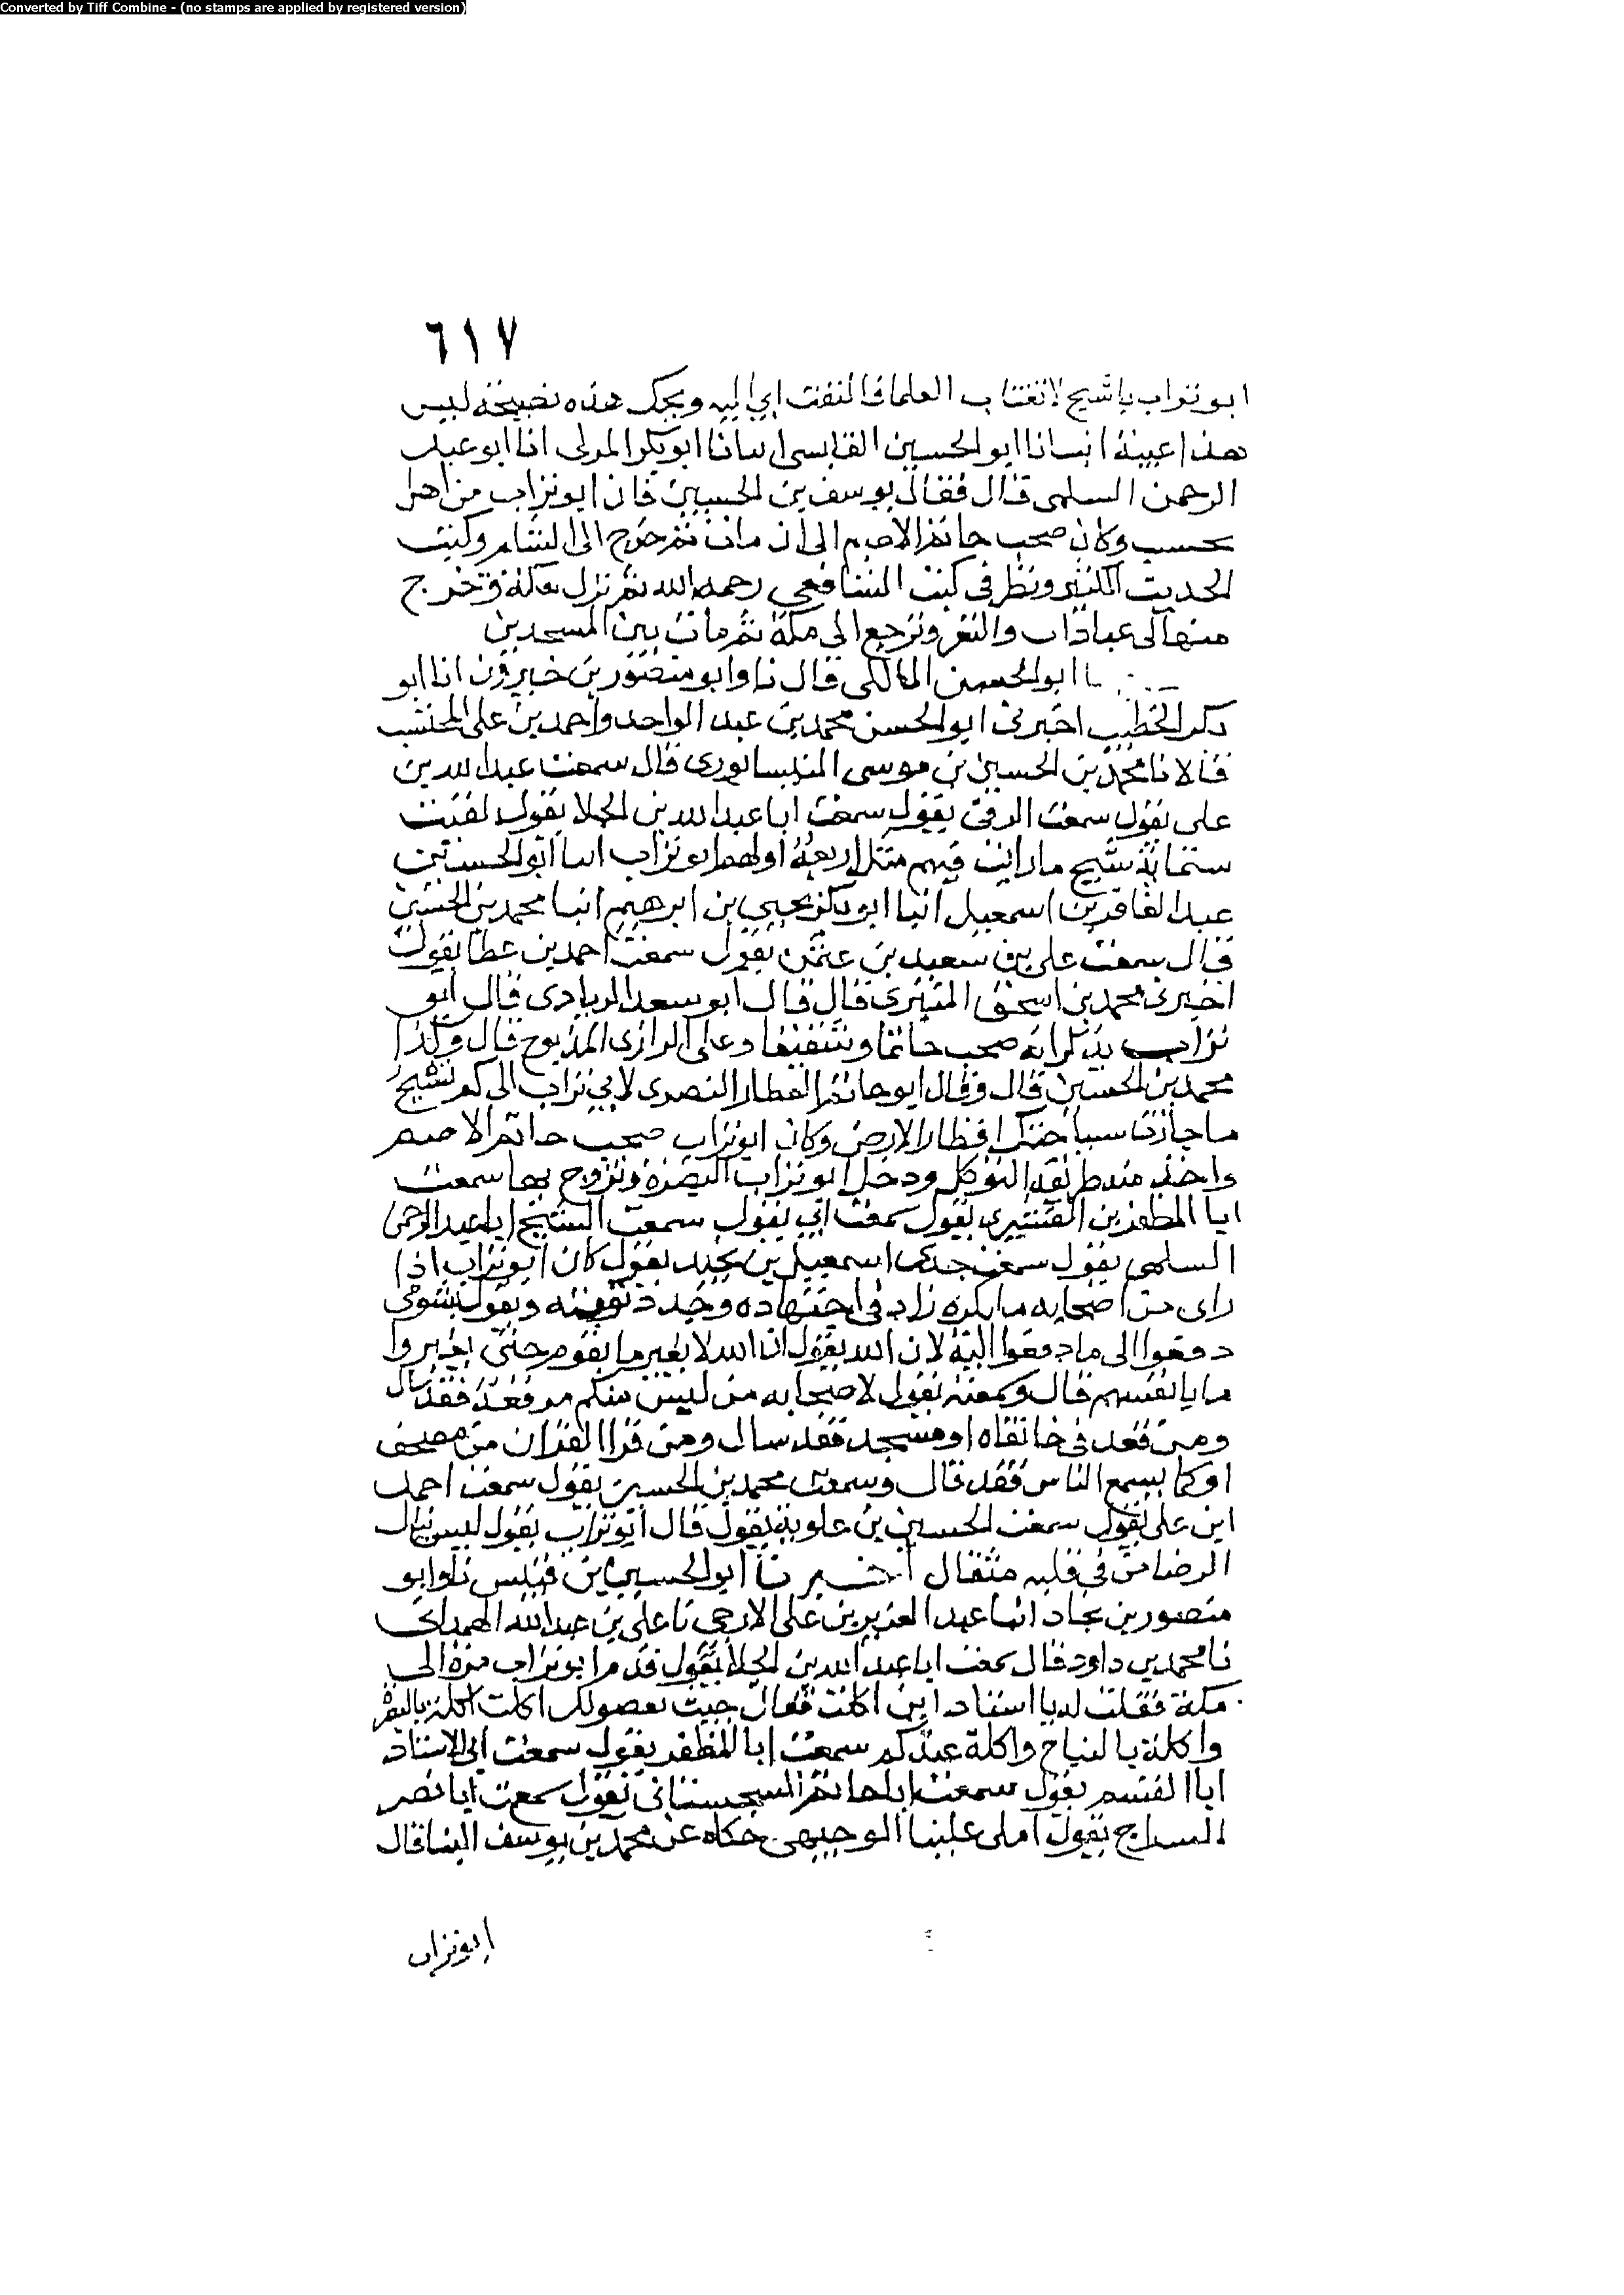 Converted by Tiff Combine - (no stamps are applied by registered version)
٦١٧
ابو تراب يا شيخ لا تغتاب العلما فالتفت ابي اليه ويحك هذه نصيحة ليس
هذا غيبة انبانا ابو الحسين انبانا ابو بكر انا ابو عبد
الرحمن السلمى قال فقال يوسف بن الحسين فان ابو تراب من اهل
وكان صحب حاتم الاصم الى ان مات ثم خرج الى الشام وكتب
الحديث الكثير ونظر فى كتب الشافعي رحمه الله ثم نزل مكة وخرج
منها الى عبادان والثغر وترجع الى مكة ثم مات بين المسجدين
ابو الحسن المالكى قال نا وابو منصور بن خيرون انا ابو
بكر الخطيب اخبرنى ابو الحسن محمد بن عبد الواحد واحمد بن على المحتسب
قالا نا محمد بن الحسين بن موسى النيسابورى قال سمعت عبد الله بن
على يقول سمعت الرقى يقول سمعت ابا عبد الله بن الجلا يقول لقيت
ستماية شيخ ما رايت فيهم مثل اربعة اولهم ابو تراب انبا ابو الحسن بن
عبد الغافر بن اسمعيل انبا ابو بكر يحيى بن ابرهيم انبا محمد بن الحسين
قال سمعت على بن سعيد بن عثمن يقول سمعت احمد بن عطا يقول
اخبرنى محمد بن اسحق قال قال ابو سعد قال ابو
تراب يذكر انه صحب حاتما وشقيقا وعلى الرازى المذبوح قال
محمد بن الحسين قال وقال ابو حاتم العطار البصرى لابي تراب الى كم تسيح
وكان ابو تراب صحب حاتم الاصم
واخذ منه طريقة التوكل ودخل ابو تراب البصرة وتزوج بها سمعت
ابا المظفر بن القشيرى يقول سمعت ابي يقول سمعت الشيخ ابا عبد الرحمن
السلمى يقول سمعت جدى اسمعيل بن نجيد يقول كان ابو تراب اذا
راى من اصحابه ما يكره زاد فى اجتهاده وجدد توبته ويقول بشومى
دفعوا الى ما دفعوا اليه لان الله يقول ان الله لا يغير ما بقوم حتى يغيروا
ما بانفسهم قال وسمعته يقول لاصحابه من لبس منكم مرقعة فقد سال
ومن قعد فى خانقاه او مسجد فقد سال ومن قرا القران من مصحف
او كما يسمع الناس فقد قال وسمعت محمد بن الحسين يقول سمعت احمد
ابن على يقول سمعت الحسين بن علوية يقول قال ابو تراب يقول ليس ينال
الرضا من فى قلبه مثقال اخبرنا ابو الحسين بن قبيس نا وابو
منصور بن انبا عبد العزيز بن على الازجى نا على بن عبد الله الهمدانى
نا محمد بن داود قال سمعت ابا عبد الله بن الجلا يقول قدم ابو تراب مرة الى
مكة فقلت له يا استاد اين اكلت فقال جيت بفضولك اكلت اكلة بالبصرة
واكلة بالنباج واكلة عندكم سمعت ابا المظفر يقول سمعت ابى الاستاد
ابا القسم يقول سمعت ابا حاتم السجستانى يقول سمعت ابا نصر
السراج يقول املى علينا الوجيهى حكاه عن محمد بن يوسف البنا قال
ابو تراب